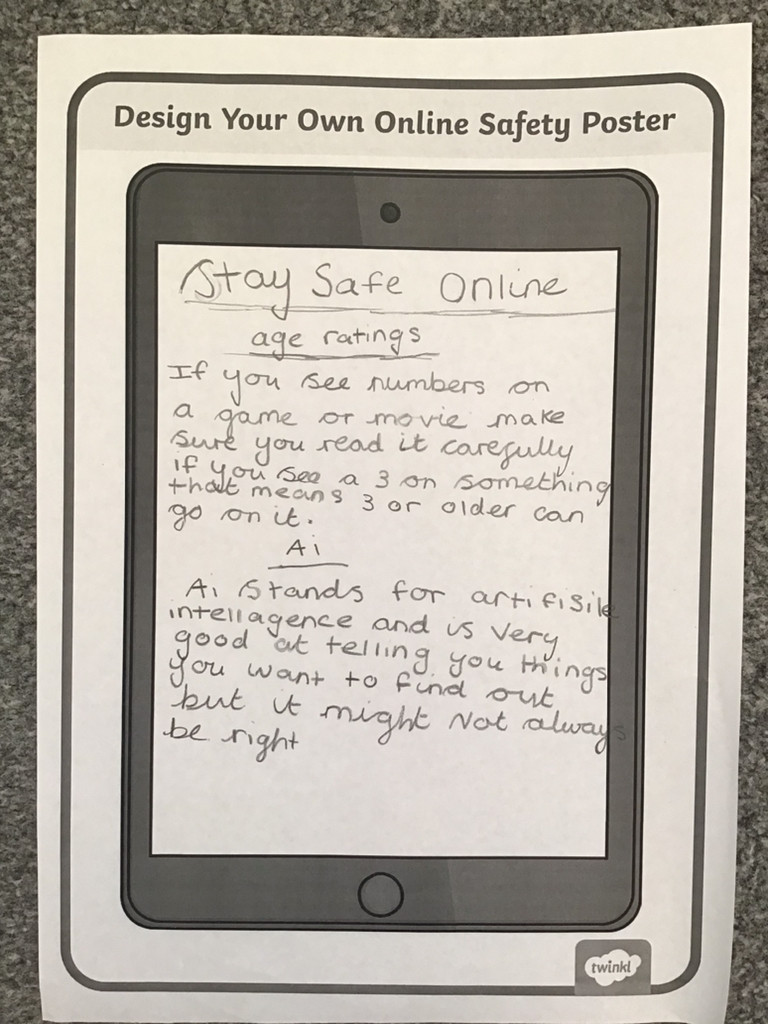 Design Your Own Online Safety Poster
Stay Safe Online
age ratings
If you see numbers on
a game or movie make
sure you read it carefully
if you see a 3 on something
that means 3 or older can
go on it.
Ai
Ai stands for artifisile
intellagence and is very
good at telling you things
you want to find out
but it might Not always
be right
twinkl